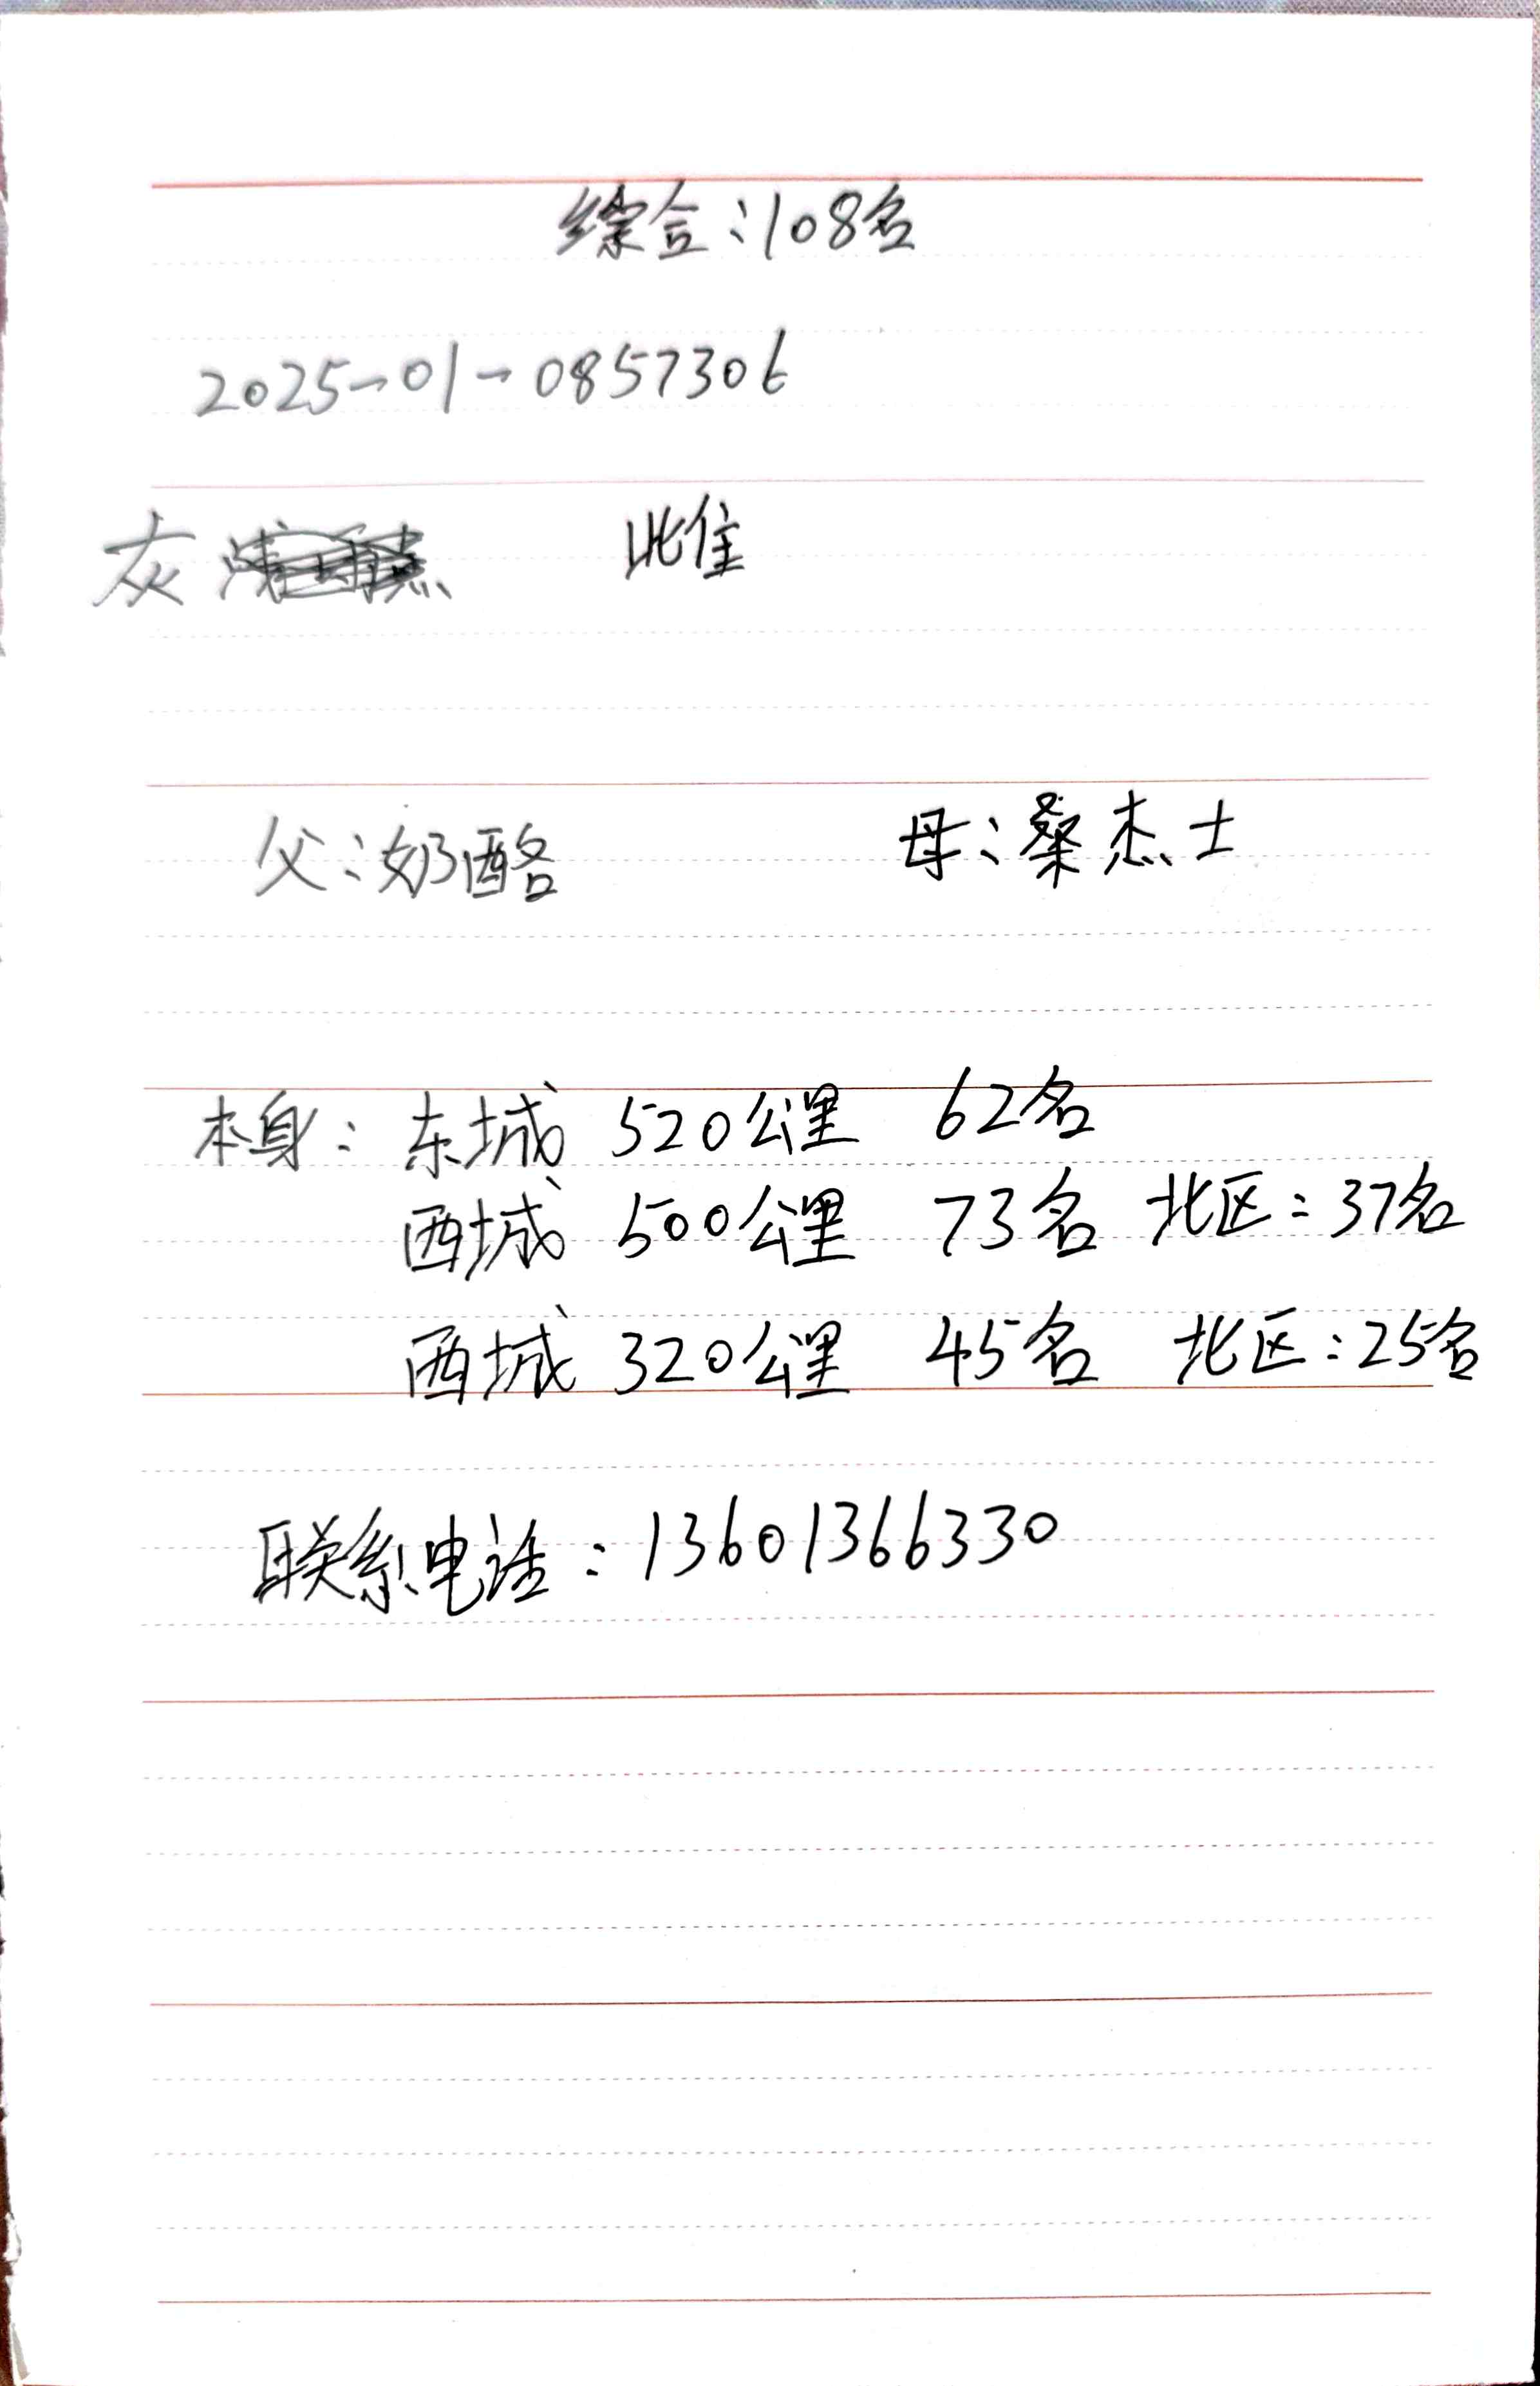 综合：108名
2025-01-0857306
灰 此隹
父：奶酪 母：桑杰士
本身：东城 520公里 62名
西城 500公里 73名 北区：37名
西城 320公里 45名 北区：25名
联系电话：13601366330